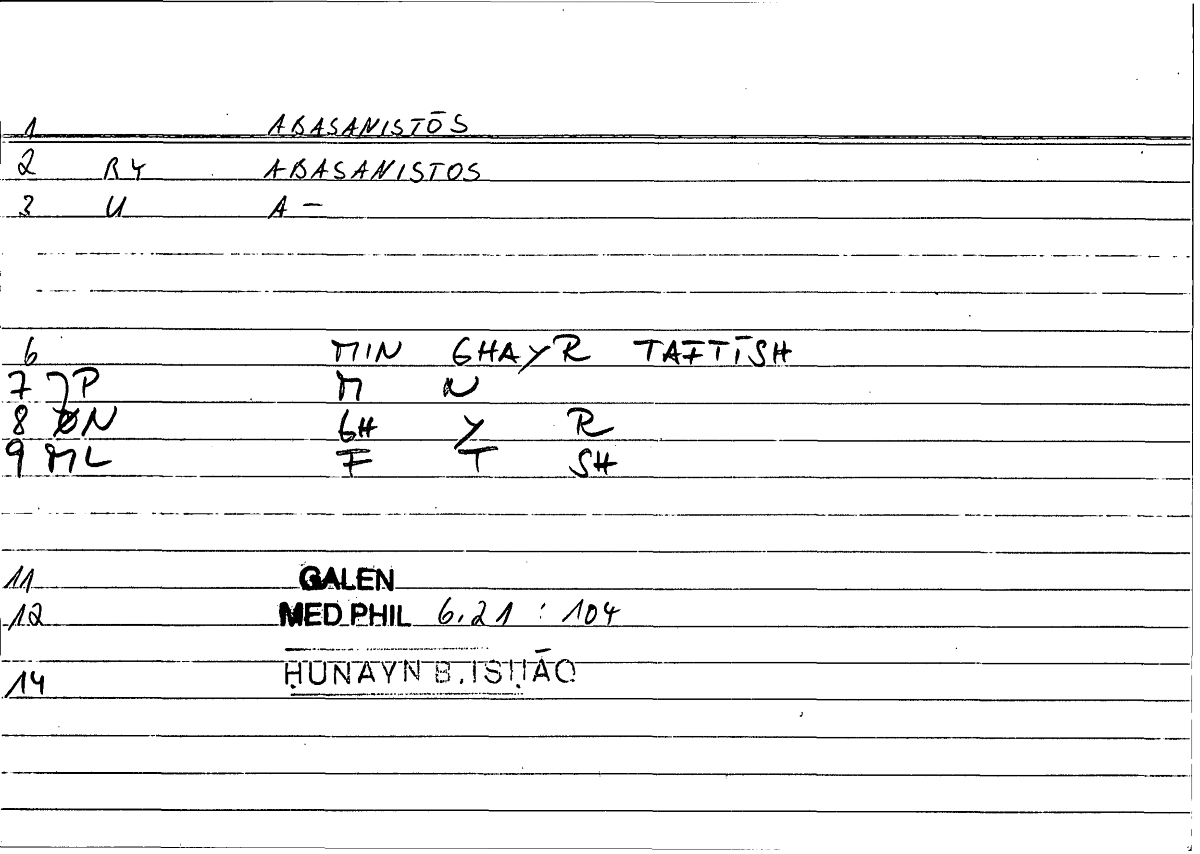 1 ABASANISTŌS
2 RY ABASANISTOS
3 U A —
6 MIN GHAYR TAFTĪSH
7 JP M N
8 ØN GH Y R
9 ML F T SH
11 GALEN
12 MED PHIL 6.21 : 104
14 ḤUNAYN B. ISḤĀQ